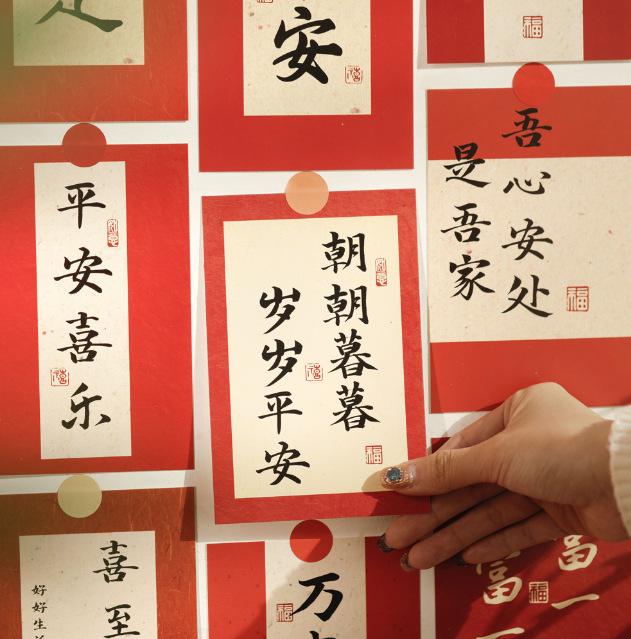 安
福
平安喜乐
朝朝暮暮
岁岁平安
吾心安处
是吾家
福
福
喜至
好好生
万
福
富一
富一